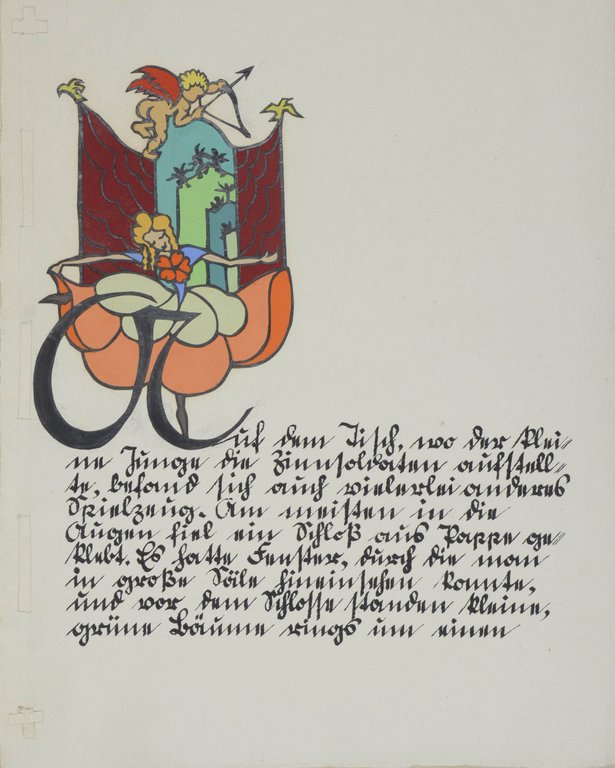 Auf dem Tisch, wo der klei=
ne Junge die Zinnsoldaten aufstell=
te, befand sich auch vielerlei anderes
Spielzeug. Am meisten in die
Augen fiel ein Schloß aus Pappe ge=
klebt. Es hatte Fenster, durch die man
in große Säle hineinsehen konnte,
und vor dem Schlosse standen kleine,
grüne Bäume rings um einen